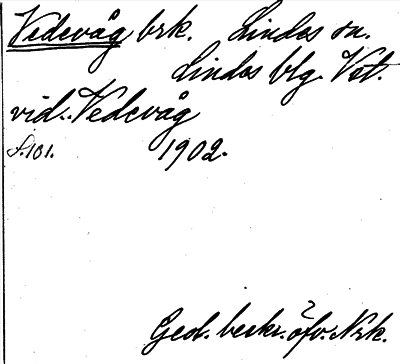 Vedevåg brk. Lindes sn.
Lindes blg. Vst.
vid. Vedevåg
S. 101. 1902.
Ged. beskr. öfv. Nrk.